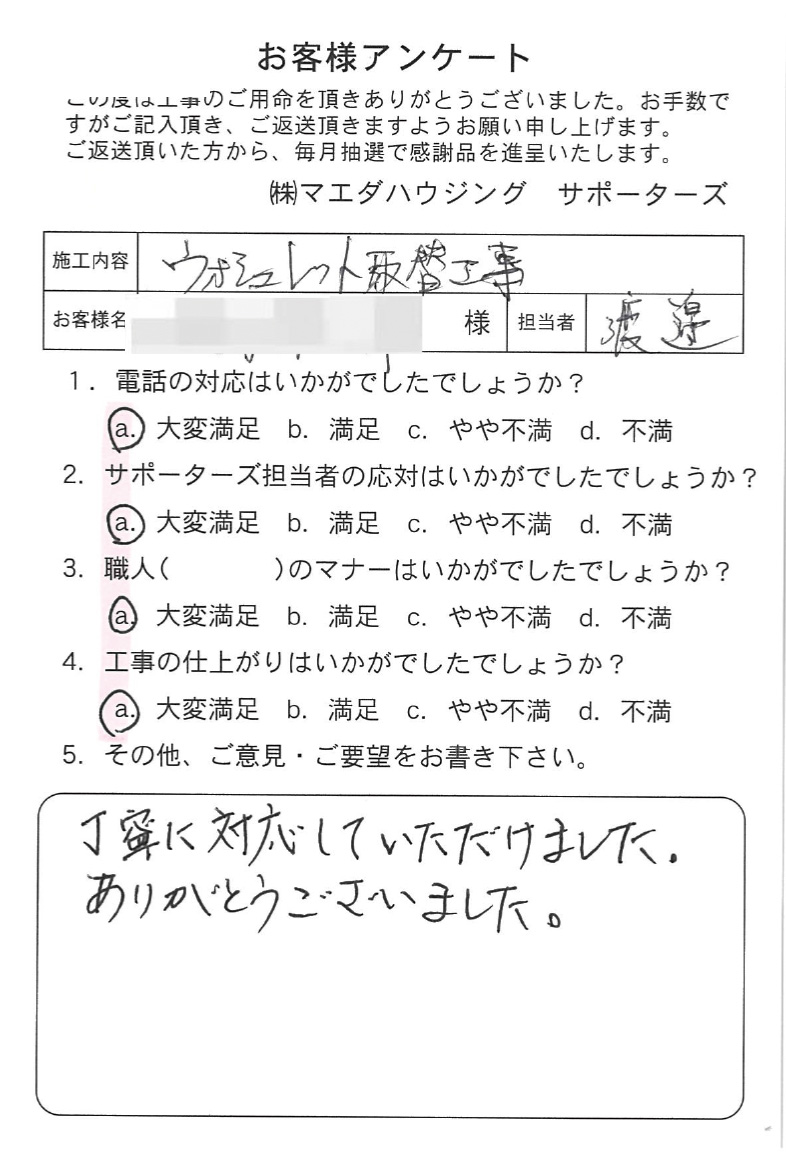 お客様アンケート
この度は工事のご用命を頂きありがとうございました。お手数で
すがご記入頂き、ご返送頂きますようお願い申し上げます。
ご返送頂いた方から、毎月抽選で感謝品を進呈いたします。
㈱マエダハウジング サポーターズ
施工内容 ウォシュレット取替工事
お客様名 様 担当者 渡邉
1. 電話の対応はいかがでしたでしょうか？
a. 大変満足 b. 満足 c. やや不満 d. 不満
2. サポーターズ担当者の応対はいかがでしたでしょうか？
a. 大変満足 b. 満足 c. やや不満 d. 不満
3. 職人( )のマナーはいかがでしたでしょうか？
a. 大変満足 b. 満足 c. やや不満 d. 不満
4. 工事の仕上がりはいかがでしたでしょうか？
a. 大変満足 b. 満足 c. やや不満 d. 不満
5. その他、ご意見・ご要望をお書き下さい。
丁寧に対応していただけました.
ありがとうございました。